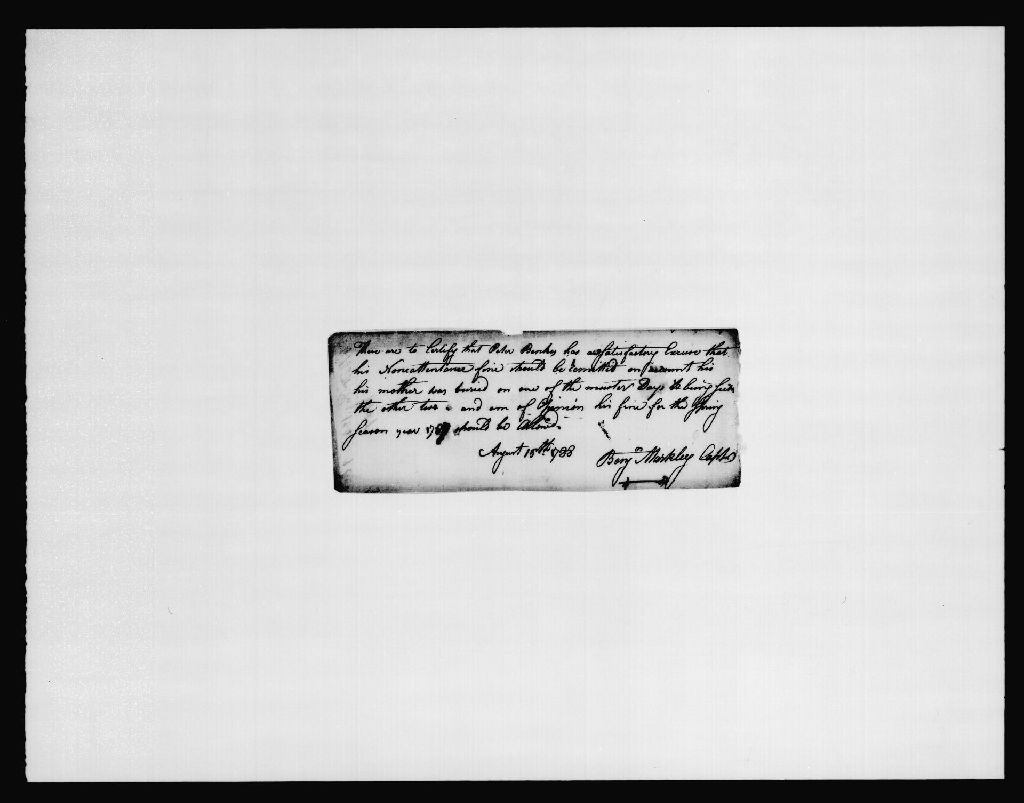 These are to Certify that Peter Benkes has a satisfactory Excuse that
his Nonattentance fine should be remitted on account his
his mother was buried on one of the muster Days & being sick
the other two - and em of Opinion his fine for the Spring
Season year 1787 should be allowed
August 15th 1788
Benjn Markley Captn